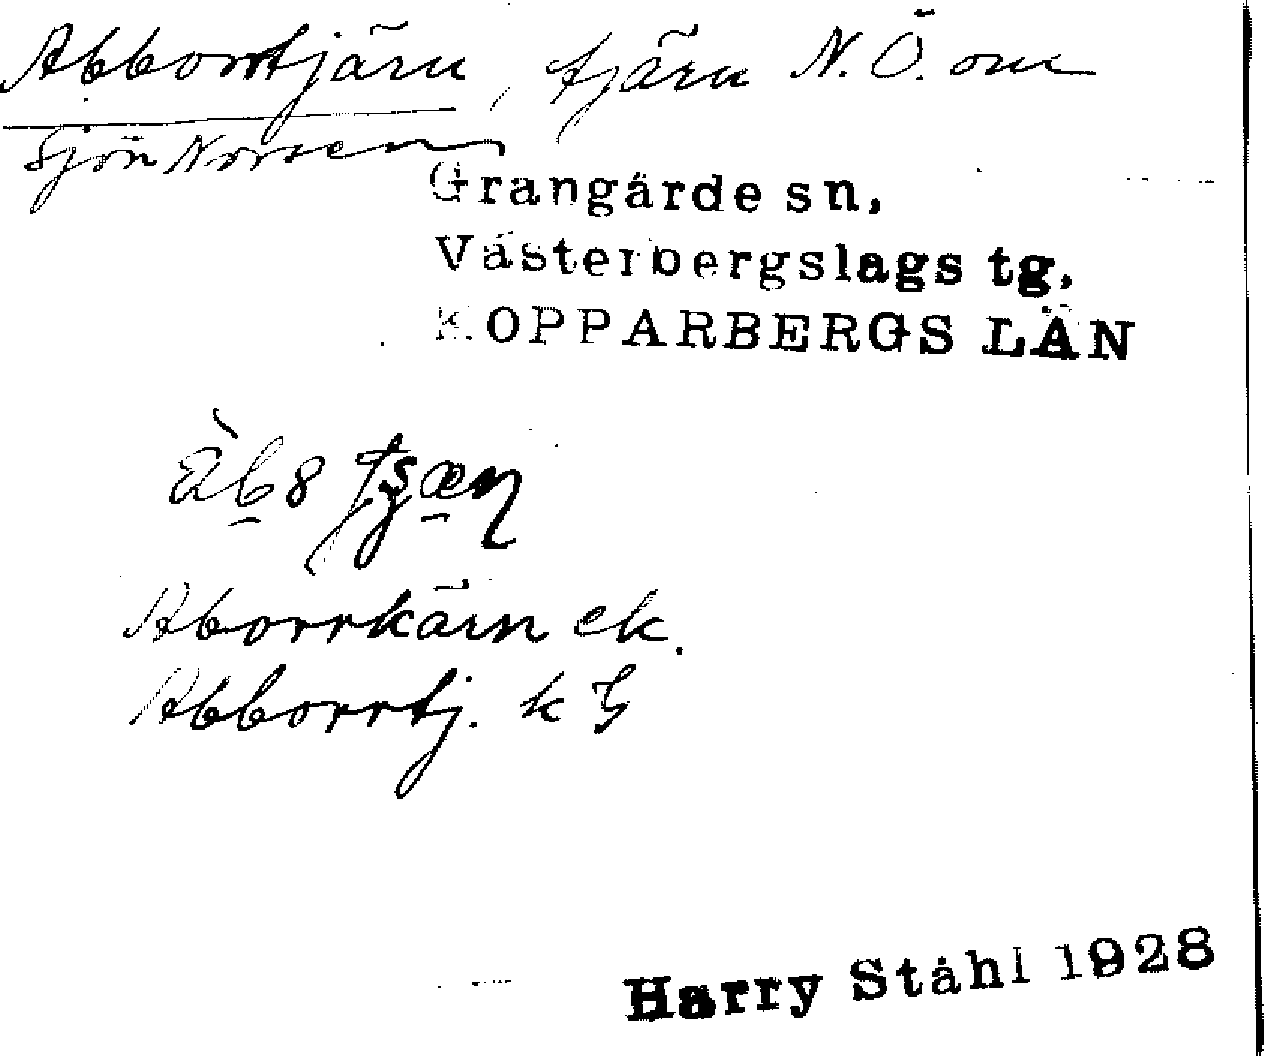 Abborrtjärn, tjärn N.Ö. om
Sjön Norsen
Grangärde sn,
Västerbergslags tg.
KOPPARBERGS LÄN
Aborrkärn ek.
Abborrtj. k G
Harry Ståhl 1928